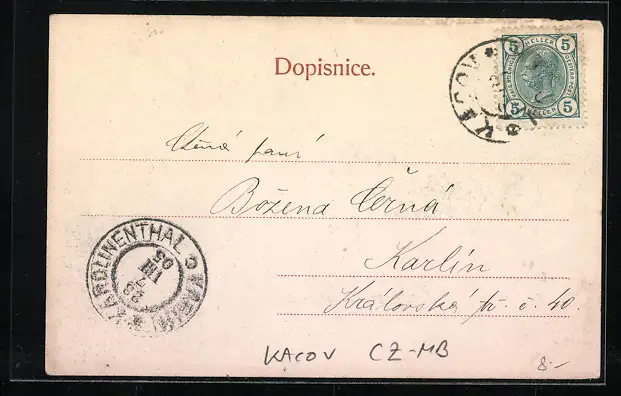 Dopisnice.
5 HELLER 5
5 HELLER 5
KÁCOV
Ctěná paní
Božena Černá
Karlín
Královská tř. č. 40.
KAROLINENTHAL KARLÍN
23
VIII
05
KACOV CZ-MB
8.-